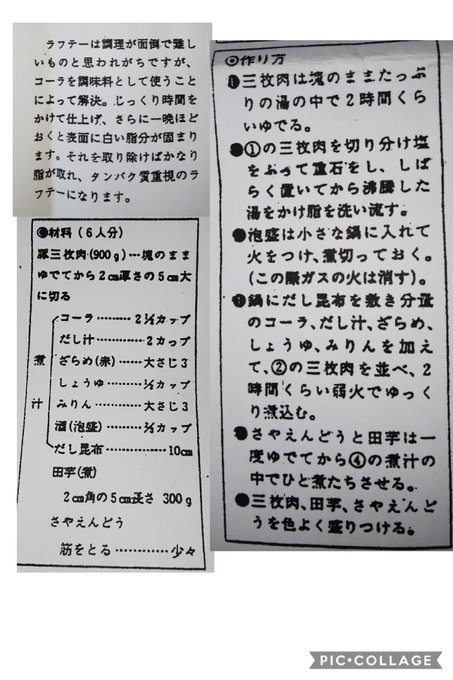 ラフテーは調理が面倒で難し
いものと思われがちですが、
コーラを調味料として使うこと
によって解決。じっくり時間を
かけて仕上げ、さらに一晩ほど
おくと表面に白い脂分が固まり
ます。それを取り除けばかなり
脂が取れ、タンパク質重視のラ
フテーになります。
◎材料(6人分)
豚三枚肉(900g)…塊のまま
ゆでてから2㎝厚さの5㎝大
に切る
煮汁
コーラ………2½カップ
だし汁…………2カップ
ざらめ(赤)……大さじ3
しょうゆ………½カップ
みりん…………大さじ3
酒(泡盛)………カップ
だし昆布…………10㎝
田芋(煮)
2㎝角の5㎝長さ 300g
さやえんどう
筋をとる……………少々
◎作り方
①三枚肉は塊のままたっぷ
りの湯の中で2時間くら
いゆでる。
●①の三枚肉を切り分け塩
をふって重石をし、しば
らく置いてから沸騰した
湯をかけ脂を洗い流す。
●泡盛は小さな鍋に入れて
火をつけ、煮切っておく。
(この際ガスの火は消す)。
鍋にだし昆布を敷き分量
のコーラ、だし汁、ざらめ、
しょうゆ、みりんを加え
て、②の三枚肉を並べ、2
時間くらい弱火でゆっく
り煮込む。
●さやえんどうと田芋は一
度ゆでてから④の煮汁の
中でひと煮たちさせる。
●三枚肉、田芋、さやえんど
うを色よく盛りつける。
PIC•COLLAGE